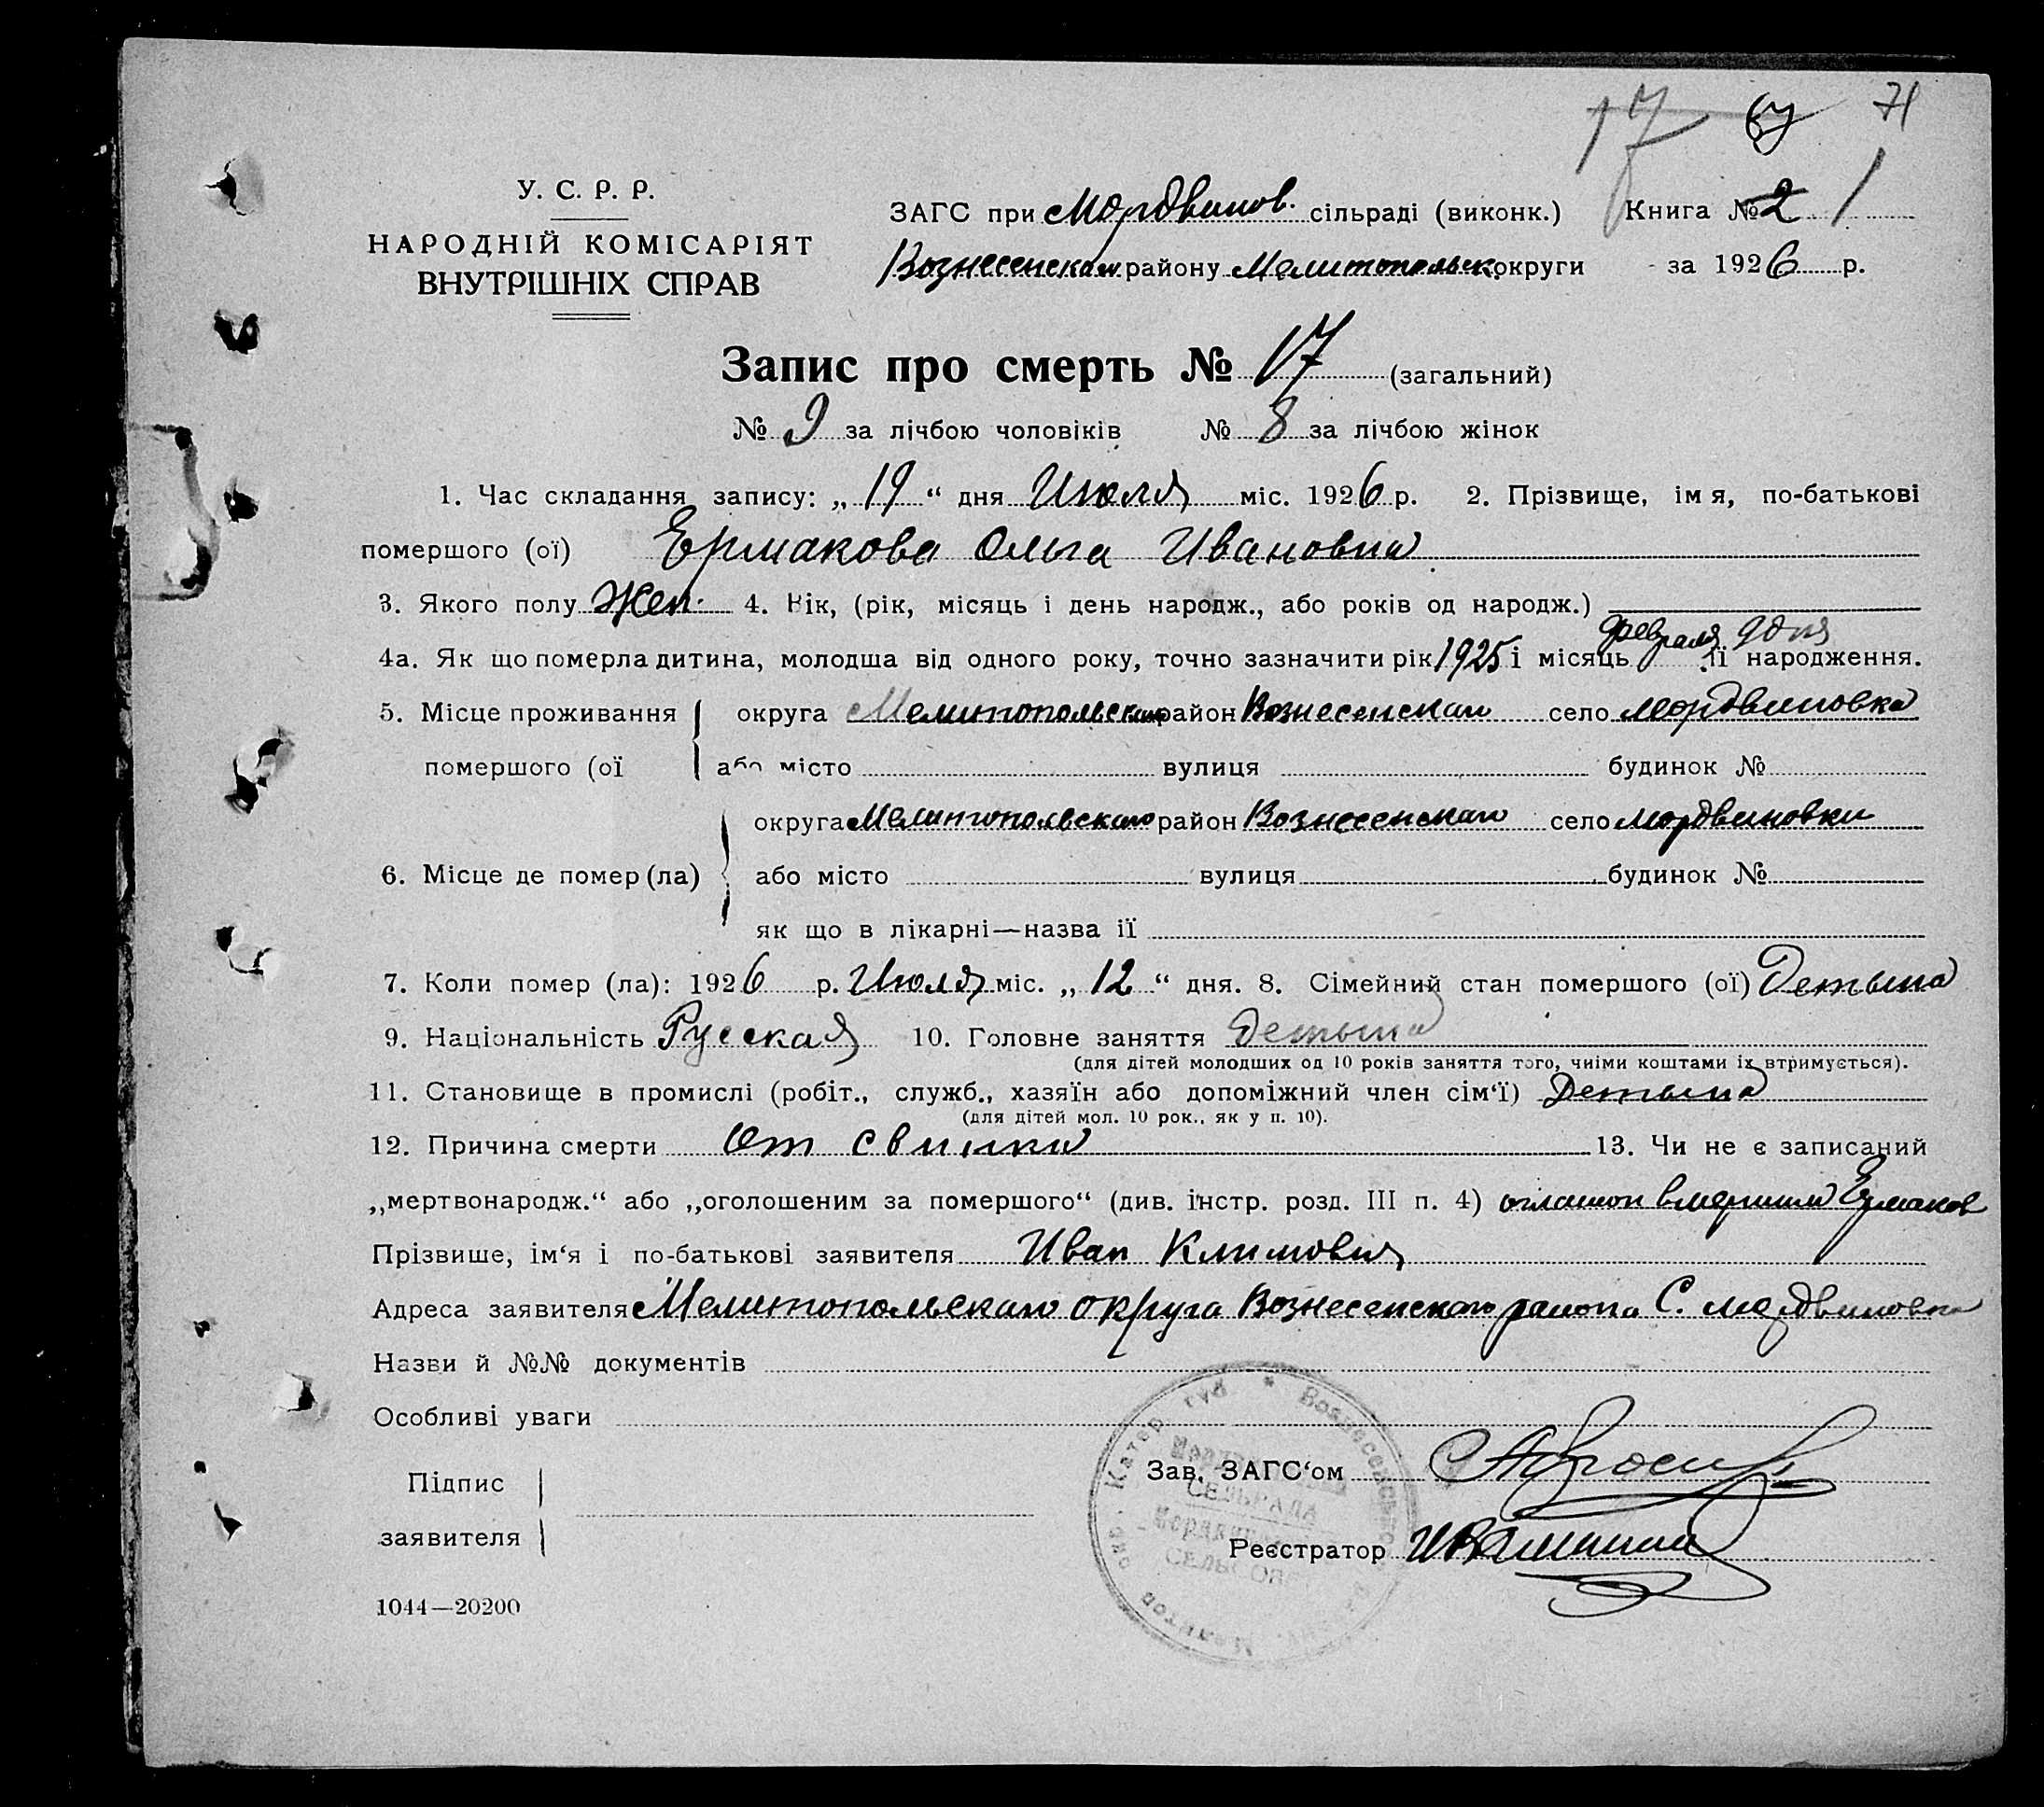 17 67 71
У. С. Р. Р.
НАРОДНІЙ КОМІСАРІЯТ
ВНУТРІШНІХ СПРАВ
ЗАГС при Мордвинов. сільраді (виконк.) Книга № 2 1
Вознесенскаго району Мелитопольск. округи за 1926 р.
Запис про смерть № 17 (загальний)
№ 9 за лічбою чоловіків № 8 за лічбою жінок
1. Час складання запису: „19“ дня Июля міс. 1926 р. 2. Прізвище, імя, по-батькові
помершого (ої) Ермакова Ольга Ивановна
3. Якого полу Жен. 4. Вік, (рік, місяць і день народж., або років од народж.)
4а. Як що померла дитина, молодша від одного року, точно зазначити рік 1925 і місяць февраля 9 дня її народження.
5. Місце проживання округа Мелитопольскаго район Вознесенскаго село Мордвиновка
помершого (ої або місто вулиця будинок №
округа Мелитопольскаго район Вознесенскаго село Мордвиновки
6. Місце де помер (ла) або місто вулиця будинок №
як що в лікарні—назва її
7. Коли помер (ла): 1926 р. Июля міс. „12“ дня. 8. Сімейний стан помершого (ої) Детына
9. Національність Русская 10. Головне заняття Детына
(для дітей молодших од 10 років заняття того, чиїми коштами їх втримується).
11. Становище в промислі (робіт., служб., хазяїн або допоміжний член сім‘ї) Детына
(для дітей мол. 10 рок., як у п. 10).
12. Причина смерти От свинки 13. Чи не є записаний
„мертвонародж.“ або „оголошеним за помершого“ (див. інстр. розд. III п. 4) Ермаков
Прізвище, ім‘я і по-батькові заявителя Иван Климовия
Адреса заявителя Мелитопольскаго округа Вознесенскаго района С. Мордвиновка
Назви й №№ документів
Особливі уваги
Підпис
заявителя
Зав. ЗАГС‘ом
Реєстратор
Катер. губ. * Вознесенс
СЕЛЬРАДА
1044—20200